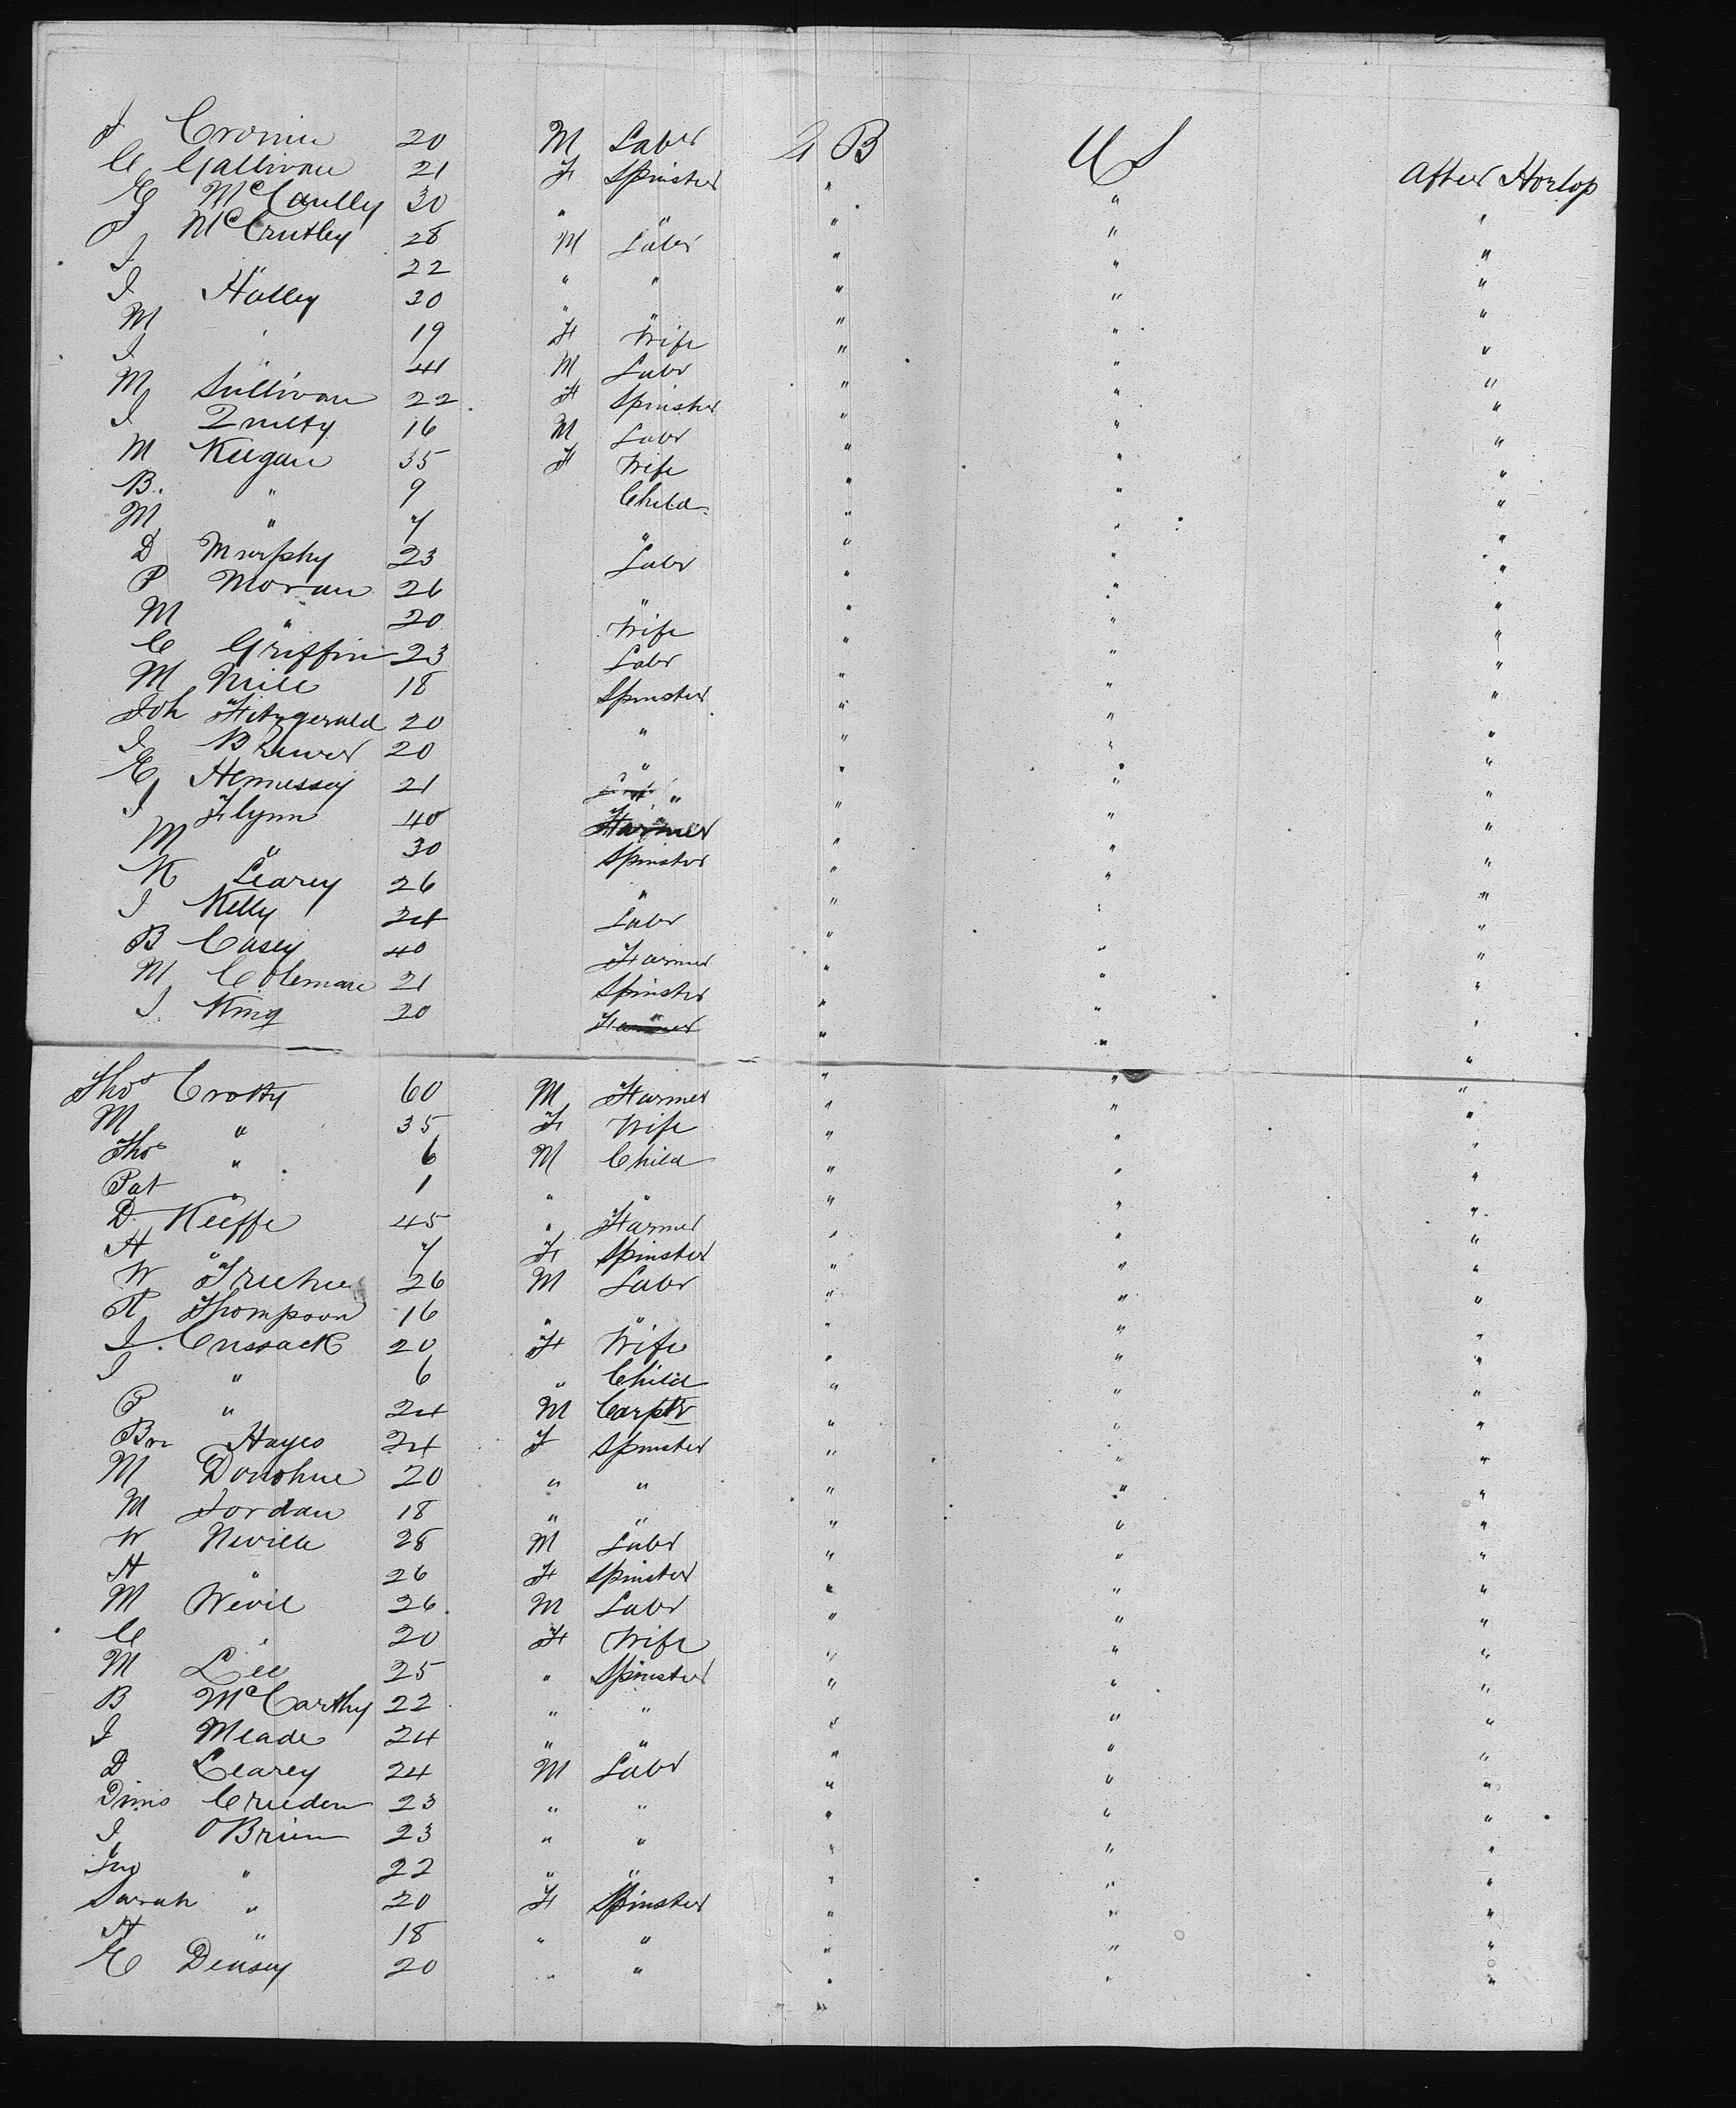 J Cronin 20 M Labr G B U S After Horlop
C Gallivan 21 F Spinster " " "
E McCaully 30 " " " " "
J McCrutley 28 M Labr " " "
J " 22 " " " " "
J Halley 30 " " " " "
M " 19 F Wife " " "
J " 41 M Labr " " "
M Sullivan 22 F Spinster " " "
J Quilty 16 M Labr " " "
M Keegan 35 F Wife " " "
B. " 9 Child " " "
M " 7 " " " "
D Murphy 23 Labr " " "
P Moran 26 " " " "
M " 20 Wife " " "
C Griffin 23 Labr " " "
M Neill 18 Spinster " " "
Joh Fitzgerald 20 " " " "
J 20 " " " "
E Hennessey 21 " " " "
J Flynn 40 Farmer " " "
M " 30 Spinster " " "
K Learey 26 " " " "
J Kelly 24 Labr " " "
B Casey 40 Farmer " " "
M Coleman 21 Spinster " " "
J. King 20 Farmer " " "
Thos Crotty 60 M Farmer " " "
M " 35 F Wife " " "
Thos " 6 M Child " " "
Pat " 1 " " " " "
D Keeffe 45 " Farmer " " "
H " 7 F Spinster " " "
W 26 M Labr " " "
R Thompson 16 " " " " "
J. Cussack 20 F Wife " " "
J " 6 " Child " " "
P " 24 M Carptr " " "
Hayes 24 F Spinster " " "
M Donohue 20 " " " " "
M Jordan 18 " " " " "
W Neville 28 M Labr " " "
H " 26 F Spinster " " "
M Nevil 26 M Labr " " "
C " 20 F Wife " " "
M Lee 25 " Spinster " " "
B McCarthy 22 " " " " "
J Meade 24 " " " " "
D Learey 24 M Labr " " "
Creeden 23 " " " " "
J OBrien 23 " " " " "
Jno " 22 " " " " "
Sarah " 20 F Spinster " " "
H " 18 " " " " "
E Deasey 20 " " " " "